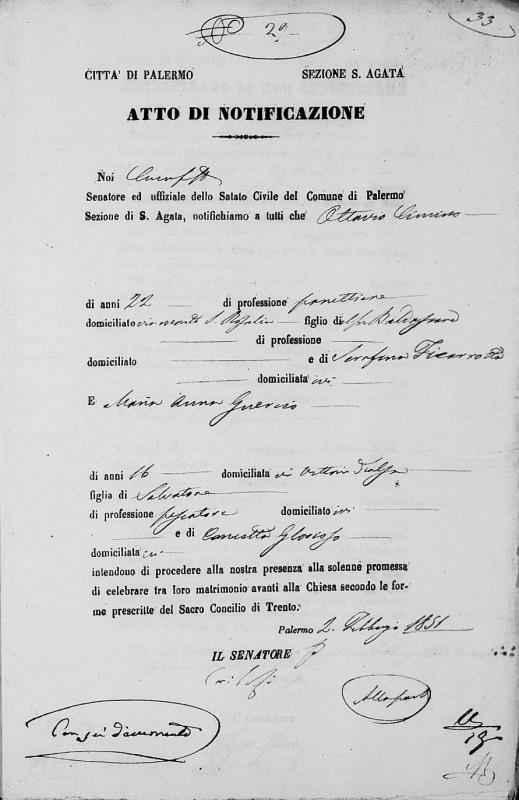 2ª
33
CITTA' DI PALERMO SEZIONE S. AGATA
ATTO DI NOTIFICAZIONE
Noi
Senatore ed uffiziale dello Satato Civile del Comune di Palermo
Sezione di S. Agata, notifichiamo a tutti che Ottavio Cimino
di anni 22 di professione panettiere
domiciliato via monte S. Rosalia figlio di Baldassare
di professione
domiciliato e di Serafina Ficarrotta
domiciliata ivi
E Maria Anna Guercio
di anni 16 domiciliata
figlia di Salvatore
di professione pescatore domiciliato ivi
e di Concetta Glorioso
domiciliata ivi
intendono di procedere alla nostra presenza alla solenne promessa
di celebrare tra loro matrimonio avanti alla Chiesa secondo le for-
me prescritte del Sacro Concilio di Trento.
Palermo 2 Febbraio 1851
IL SENATORE